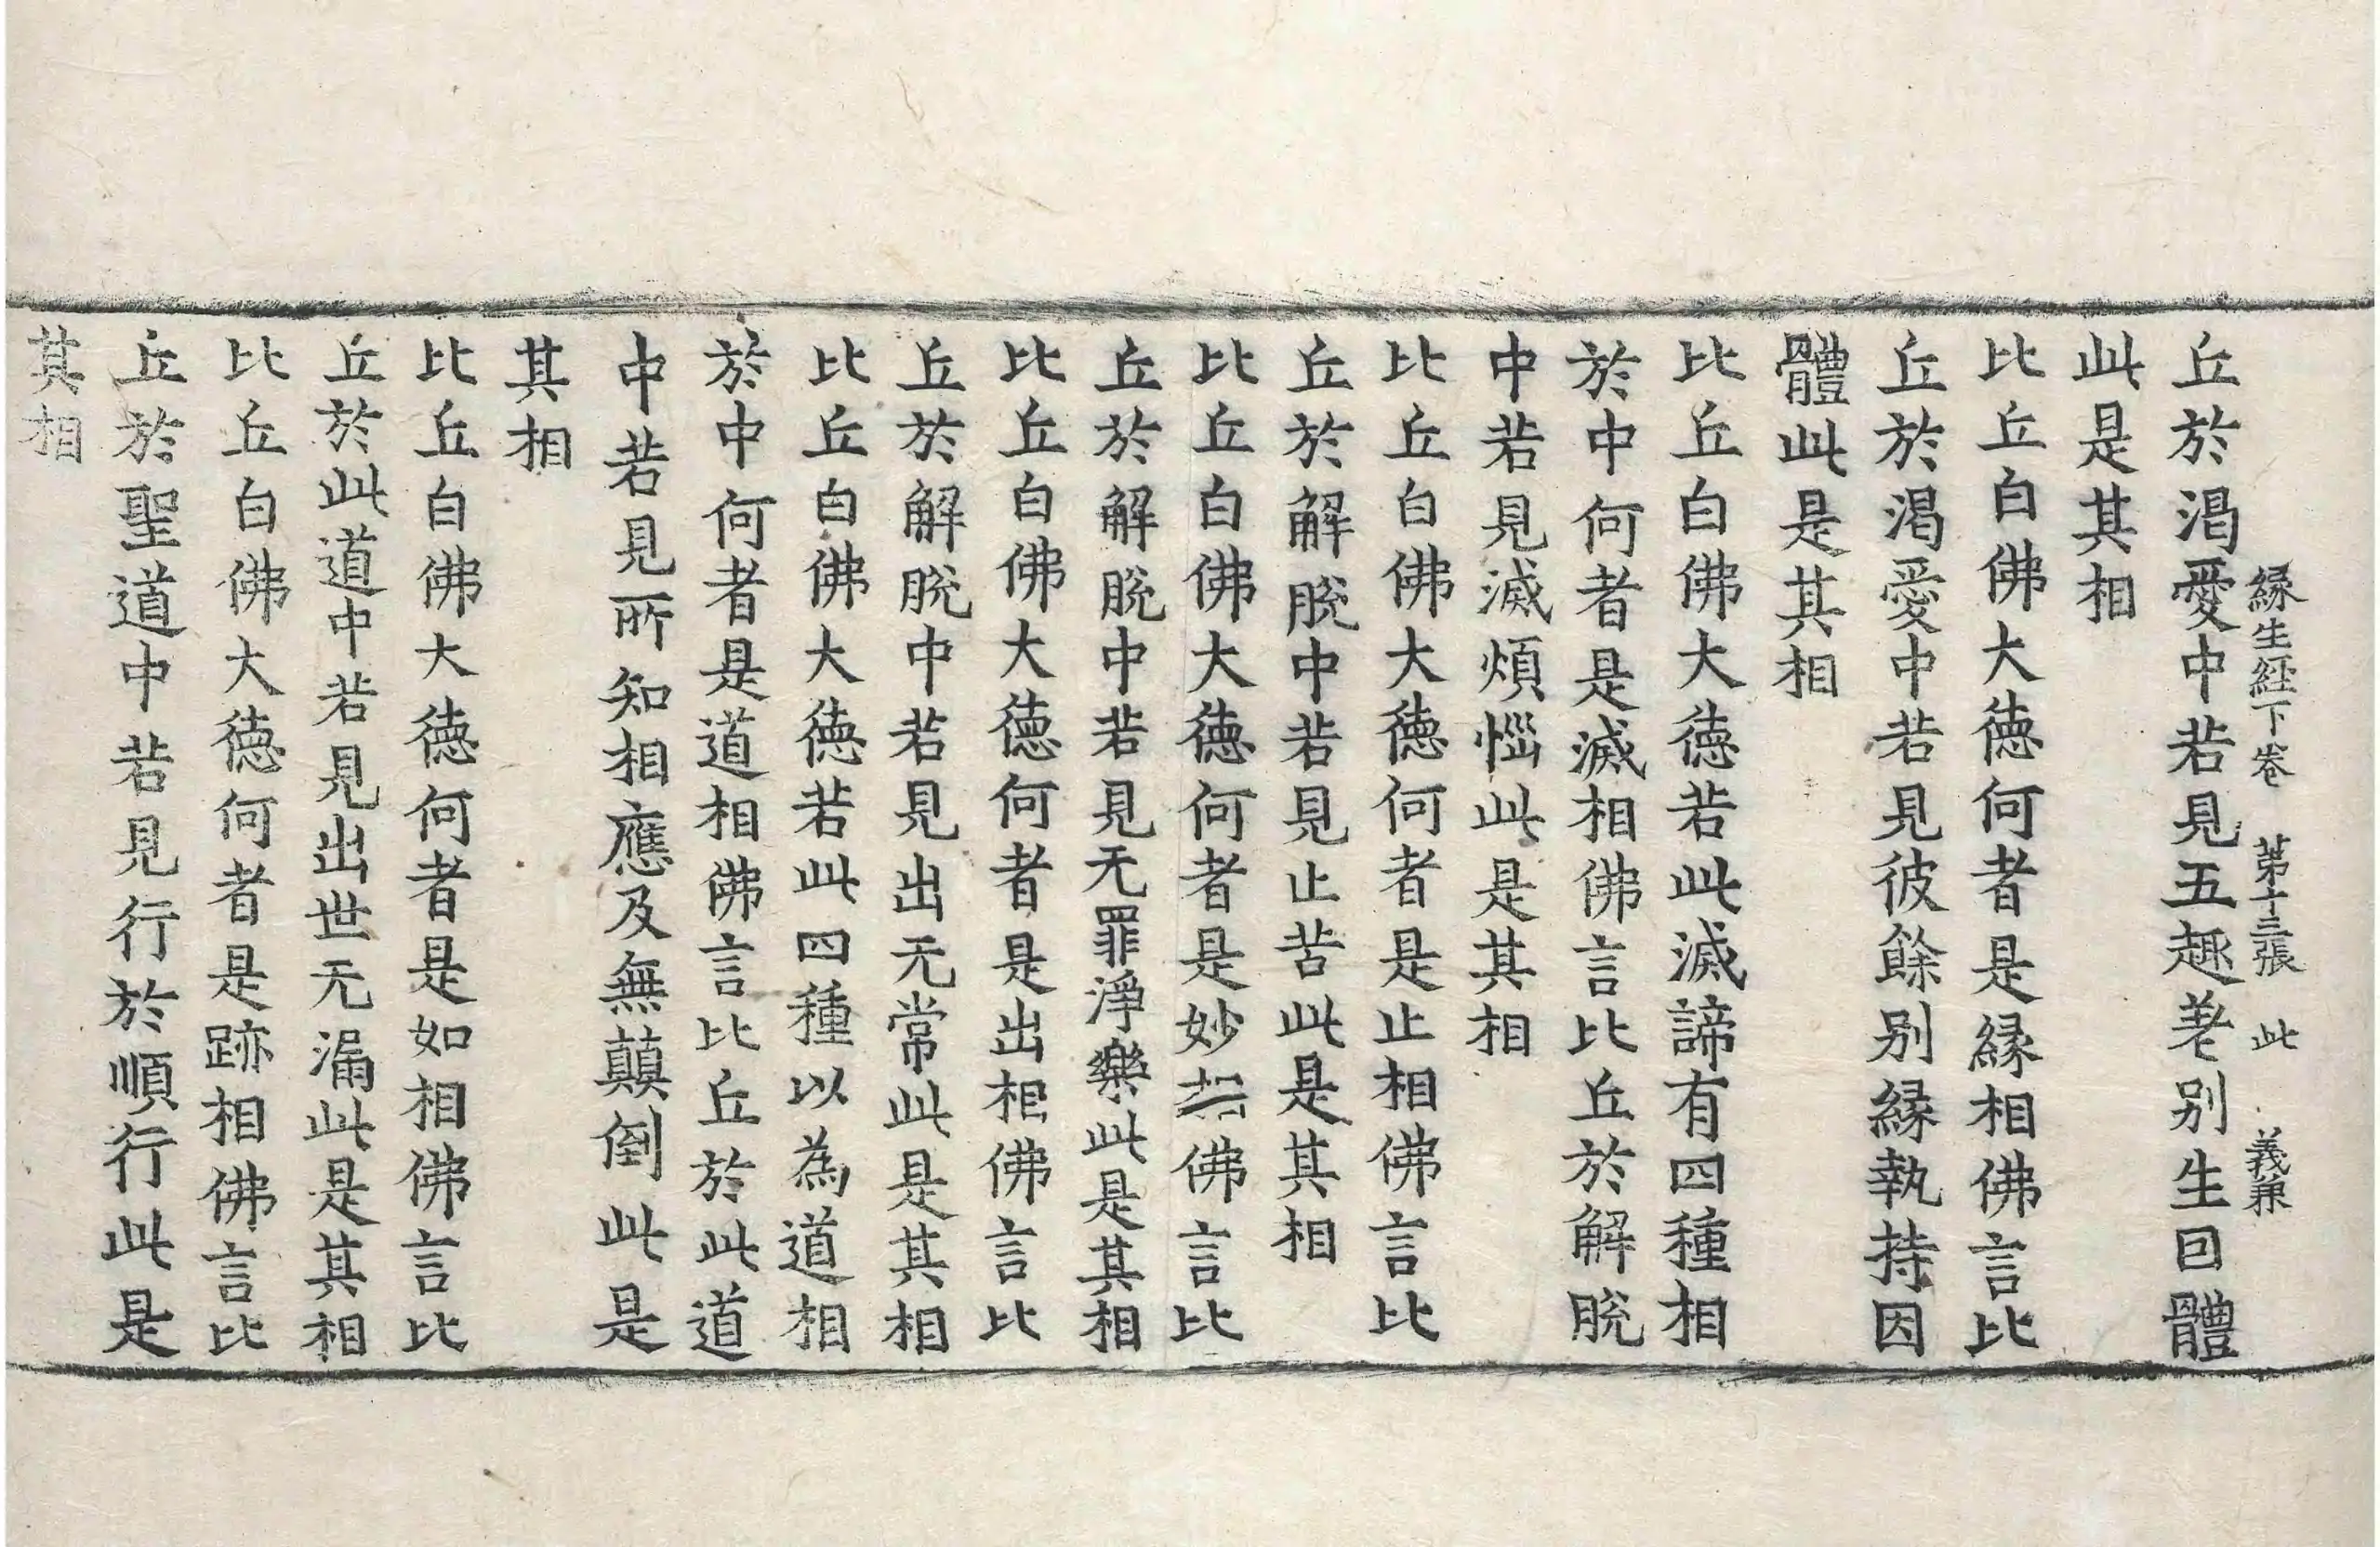 縁生経下卷 苐十三張 此 義兼
丘於渴愛中若見五趣差别生回體
此是其相
比丘白佛大德何者是縁相佛言比
丘於渴愛中若見彼餘别縁執持因
體此是其相
比丘白佛大德若此滅諦有四種相
於中何者是滅相佛言比丘於解脫
中若見滅煩惱此是其相
比丘白佛大德何者是止相佛言比
丘於解脫中若見止苦此是其相
比丘白佛大德何者是妙相佛言比
丘於解脫中若見无罪淨樂此是其相
比丘白佛大德何者是出相佛言比
丘於解脫中若見出无常此是其相
比丘白佛大德若此四種以為道相
於中何者是道相佛言比丘於此道
中若見所知相應及無顛倒此是
其相
比丘白佛大德何者是如相佛言比
丘於此道中若見出世无漏此是其相
比丘白佛大德何者是跡相佛言比
丘於聖道中若見行於順行此是
其相